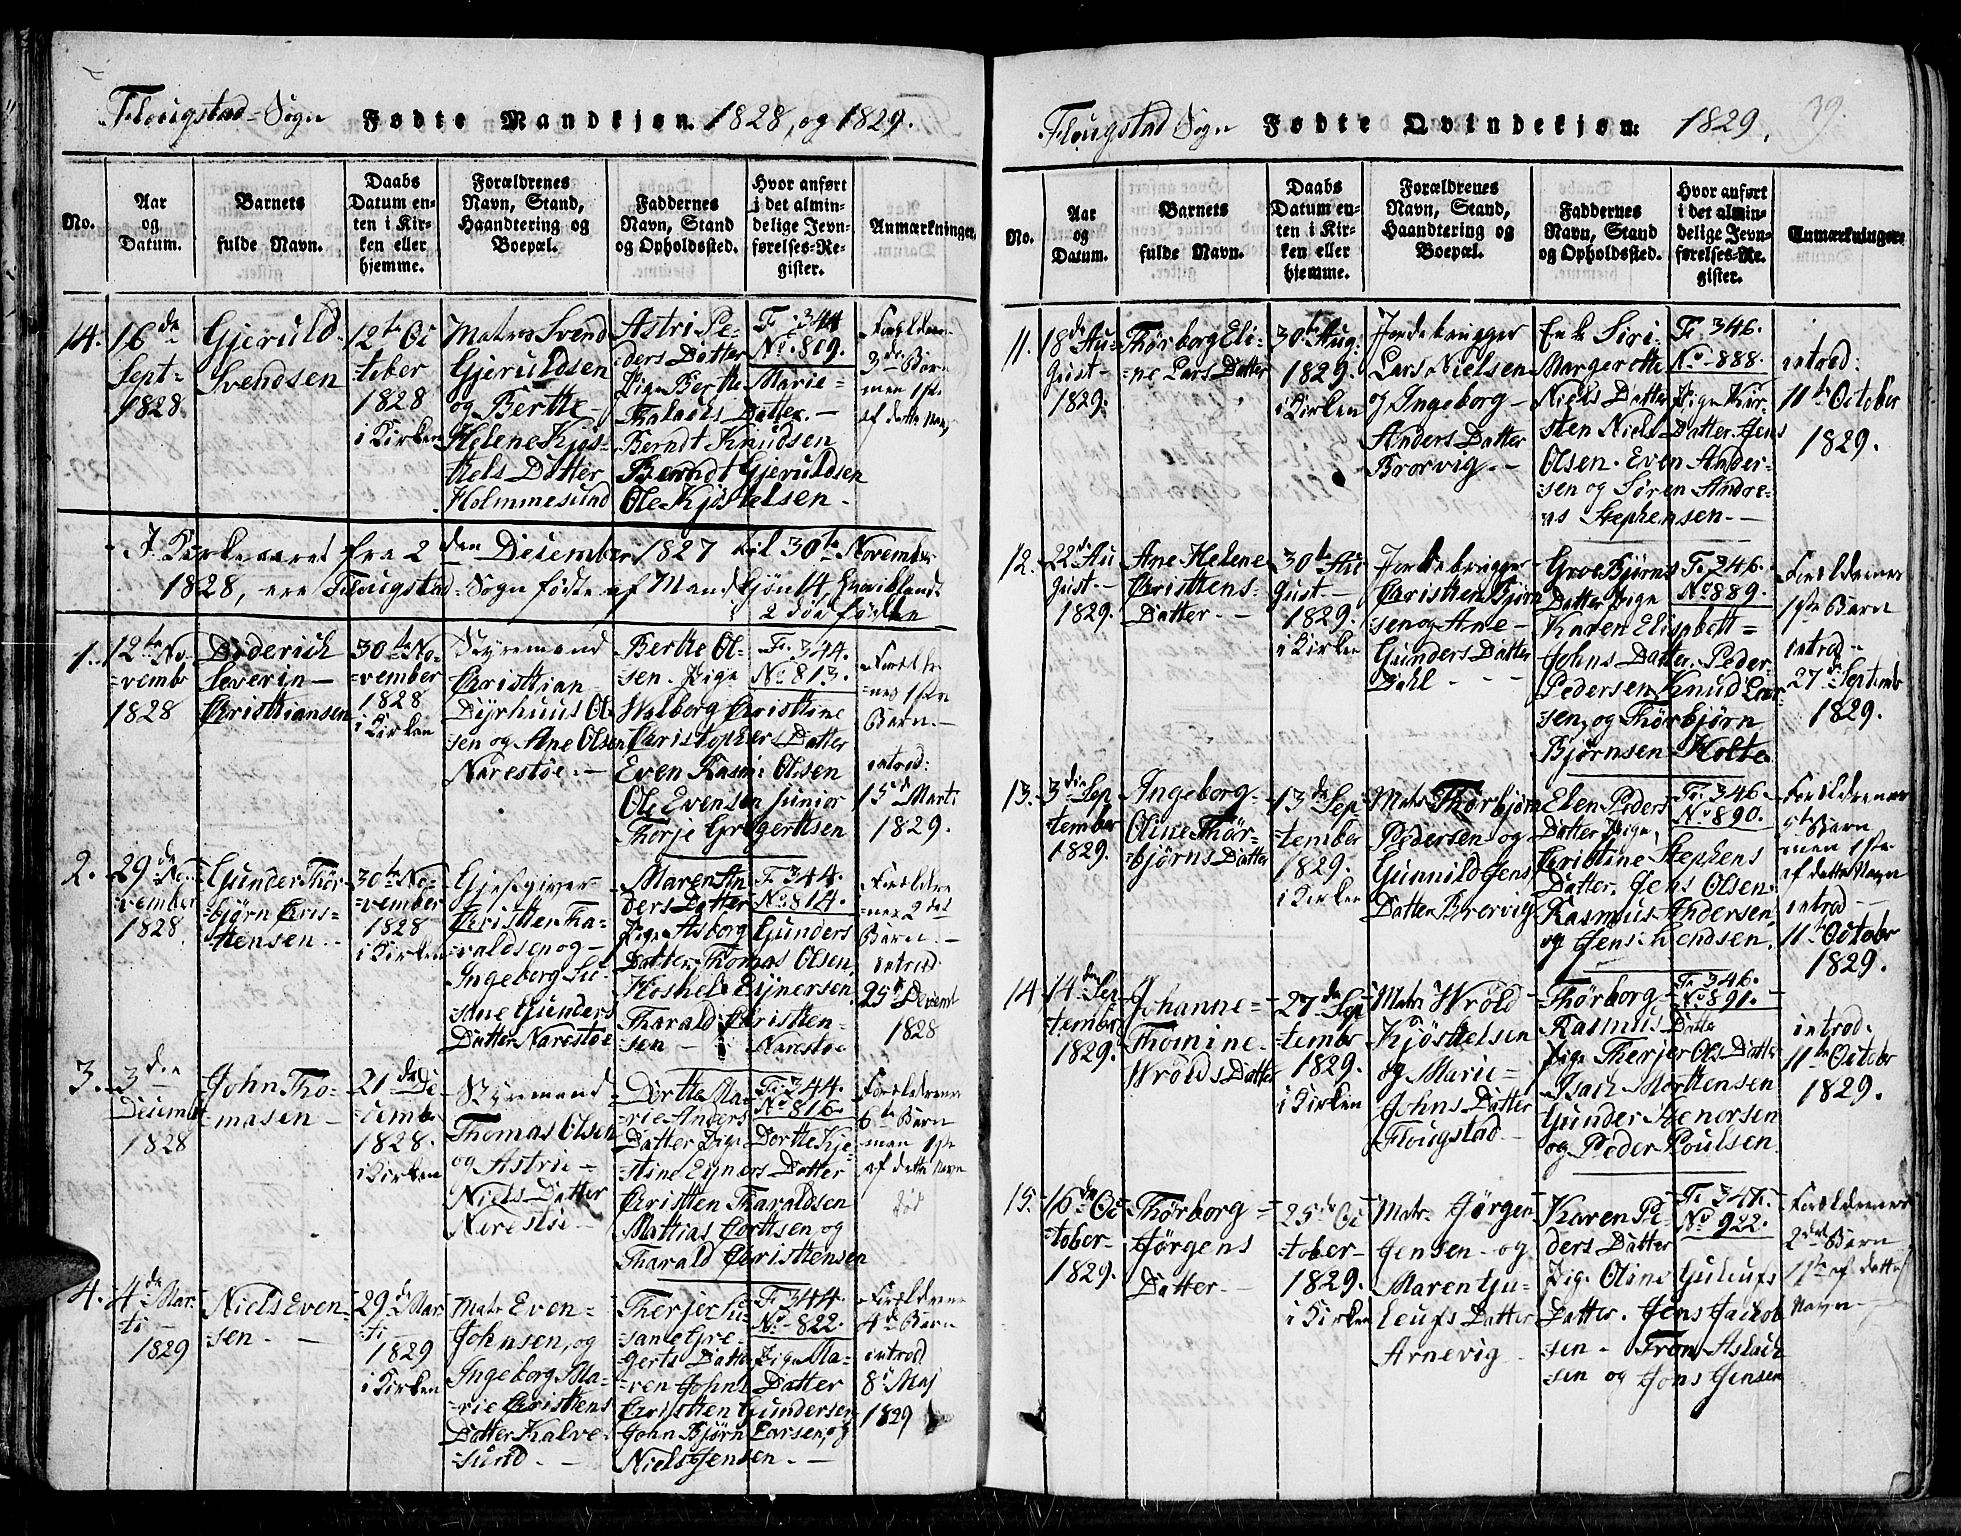 Flougstad-Sogn Fødte Mandkjøn. 1828, og 1829.
No.
Aar
og
Datum.
Barnets
fulde Navn.
Daabs
Datum en-
ten i Kir-
ken eller
hjemme.
Forældrenes
Navn, Stand,
Haandtering og
Boepæl.
Faddernes
Navn, Stand
og Opholdssted.
Hvor anført
i det almin-
delige Jevn-
førelses-Re-
gister.
Anmærkninger.
14.
16de
Sept-
1828
Gjeruld
Svendsen
12te Oc
tober
1828
i Kirken
Matros Svend
Gjeruldsen
og Berthe
Helene Kjøs-
thels Datter
Holmmesund
Astri Pe-
ders Datter
Pige Berthe Marie
Datter. —
Berndt Knudsen
Berndt Gjeruldsen
Ole Kjøstelsen.
Fo: 344
No. 809.
3de Barn
men 1ste
af dette Navn
I Kirkeaaret fra 2den December 1827 til 30te November
1828, ere Flougstad-Sogn fødte af Mandkjøn 14,
2 død fødte
1.
12te No
vembr
1828
Diderich
Severin
Christiansen
30te No-
vember
1828
i Kirken
Styrmand
Christian
Dyrhuus Ol
sen og Ane Olsen
Narestøe.
Berthe Ol-
sen. Pige
Walborg Christine
Christophers Datter
Even Rasm: Olsen
Ole Evensen Junior
Thorje Gregertsen
Fo: 344.
No 813.
nes 1ste
Barn.
introd:
15de Marts
1829.
2.
29de No-
vember
1828
Gunder Thor-
bjørn Chris-
tensen.
30te No-
vember
1828
i Kirken
Gjestgiver
Christen Tha-
raldsen og
Ingeborg Su-
sane Gunders
Datter Narestøe
Maren An
ders Datter
Pige Asborg Gunders
Datter, Thomas Olsen,
Ejnersen
Tharald Christen-
sen — Narestøe
Fo 344.
No 814.
nes 2det
Barn.
introd
25de Decemb
1828
3.
3die
Decemb
1828
John Tho-
masen
21de De
cembr
1828.
i Kirken
Styrmand
Thomas Olsen
og Astrie
Niels Datter
Narestøe
Dorthe Ma-
rie Anders
Datter Pige Dorthe Kje-
stine Ejners Datter
Christen Tharaldsen
Mathias Corthsen og
Tharald Christensen
Fo: 344.
No 816.
Forældrenes
6te Barn
men 1ste
af dette Navn
død
4.
4de Mar-
ti —
1829
Niels Even-
sen.
29de Mar
ti
1829
i Kirken
Matr Even
Johnsen, og
Ingeborg Ma-
rie Christens
Datter Kalve-
sund.
Therjer Su-
sane Gre-
gerts Datter Pige Ma-
ren Johns Datter
Christen Gundersen
John Bjørn Larsen, og
Niels Jensen.
Fo 344.
No. 822.
Forældrenes
4de Barn
introd
8de Maj
1829
Flougstad Sogn Fødte Qvindekjøn: 1829.
39.
No.
Aar
og
Datum.
Barnets
fulde Navn.
Daabs
Datum en-
ten i Kir-
ken eller
hjemme.
Forældrenes
Navn, Stand,
Haandtering og
Boepæl.
Faddernes
Navn, Stand
og Opholdssted.
Hvor anført
i det almin-
delige Jevn-
førelses-Re-
gister.
Anmærkninger.
11.
18de Au-
gust
1829.
Thørborg Eli-
ne Lars Datter
30te Aug:
1829.
i Kirken
Jordebrugger
Lars Nielsen
og Ingeborg
Anders Datter
Brorvig.
Enk Siri
Margerethe
Niels Datter, Pige Kar-
sten Niels Datter. Jens
Olsen. Even Ander-
sen og Søren Andre-
as Stephensen.
Fo 346.
No 888.
introd:
11te October
1829.
12.
22de Au
gust
1829.
Ane Helene
Christens
Datter.
30te Au
gust
1829.
i Kirken
Jordebrugger
Christen Bjørn
sen og Ane
Gunders Datter
Dahl
Groe Bjørns
Datter Pige
Karen Elisabett
Johns Datter. Peder
Pedersen, Knud Lar-
sen, og Thørbjørn
Bjørnsen Holte
Fo 346.
No 889.
Forældrenes
1ste Barn
introd
27de Septemb
1829.
13.
3die Sep
tember
1829.
Ingeborg
Oline Thør-
bjørns Datter
13de Sep
tember
1829.
i Kirken
Matr Thørbjørn
Pedersen og
Gunnild Jens
Datter Brorvig
Elen Peders
Datter Pige,
Christine Stephens
Datter, Jens Olsen
Rasmus Andersen
og Jens Svendsen.
Fo 346.
No 890.
Forældrenes
Barn
men 1ste
af dette Navn
introd
11te October
1829.
14
14de Sep-
tembr
1829.
Johanne
Thomine
Wrolds Datter
27de Sep
tembr
1829.
i Kirken
Matr Wrold
Kjøstelsen
og Marie
Johns Datter
Flougstad
Thørborg
Rasmus Datter
Pige Therjer Ols Datter
Isach Morthensen
Gunder Stenersen
og Peder Poulsen
Fo 346.
No 891.
introd.
11te Octobr
1829.
15.
16de Oc
tober
1829.
Thørborg
Jørgens
Datter
25de Oc
tober
1829.
i Kirken
Matr Jørgen
Jensen og
Maren Gu-
leufs Datter
Arnevig
Karen Pe-
ders Datter
Pige. Oline Guleufs
Datter. Jens Jacob
sen — Tron Aslach
sen og Jons Jensen
Fo 347.
No 922.
Forældrenes
2det Barn
1ste af dette
Navn